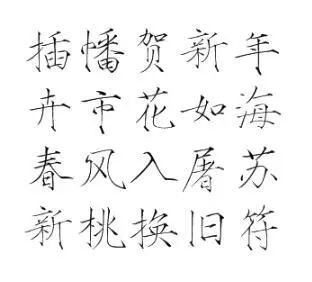 插幡贺新年
卉市花如海
春风入屠苏
新桃换旧符